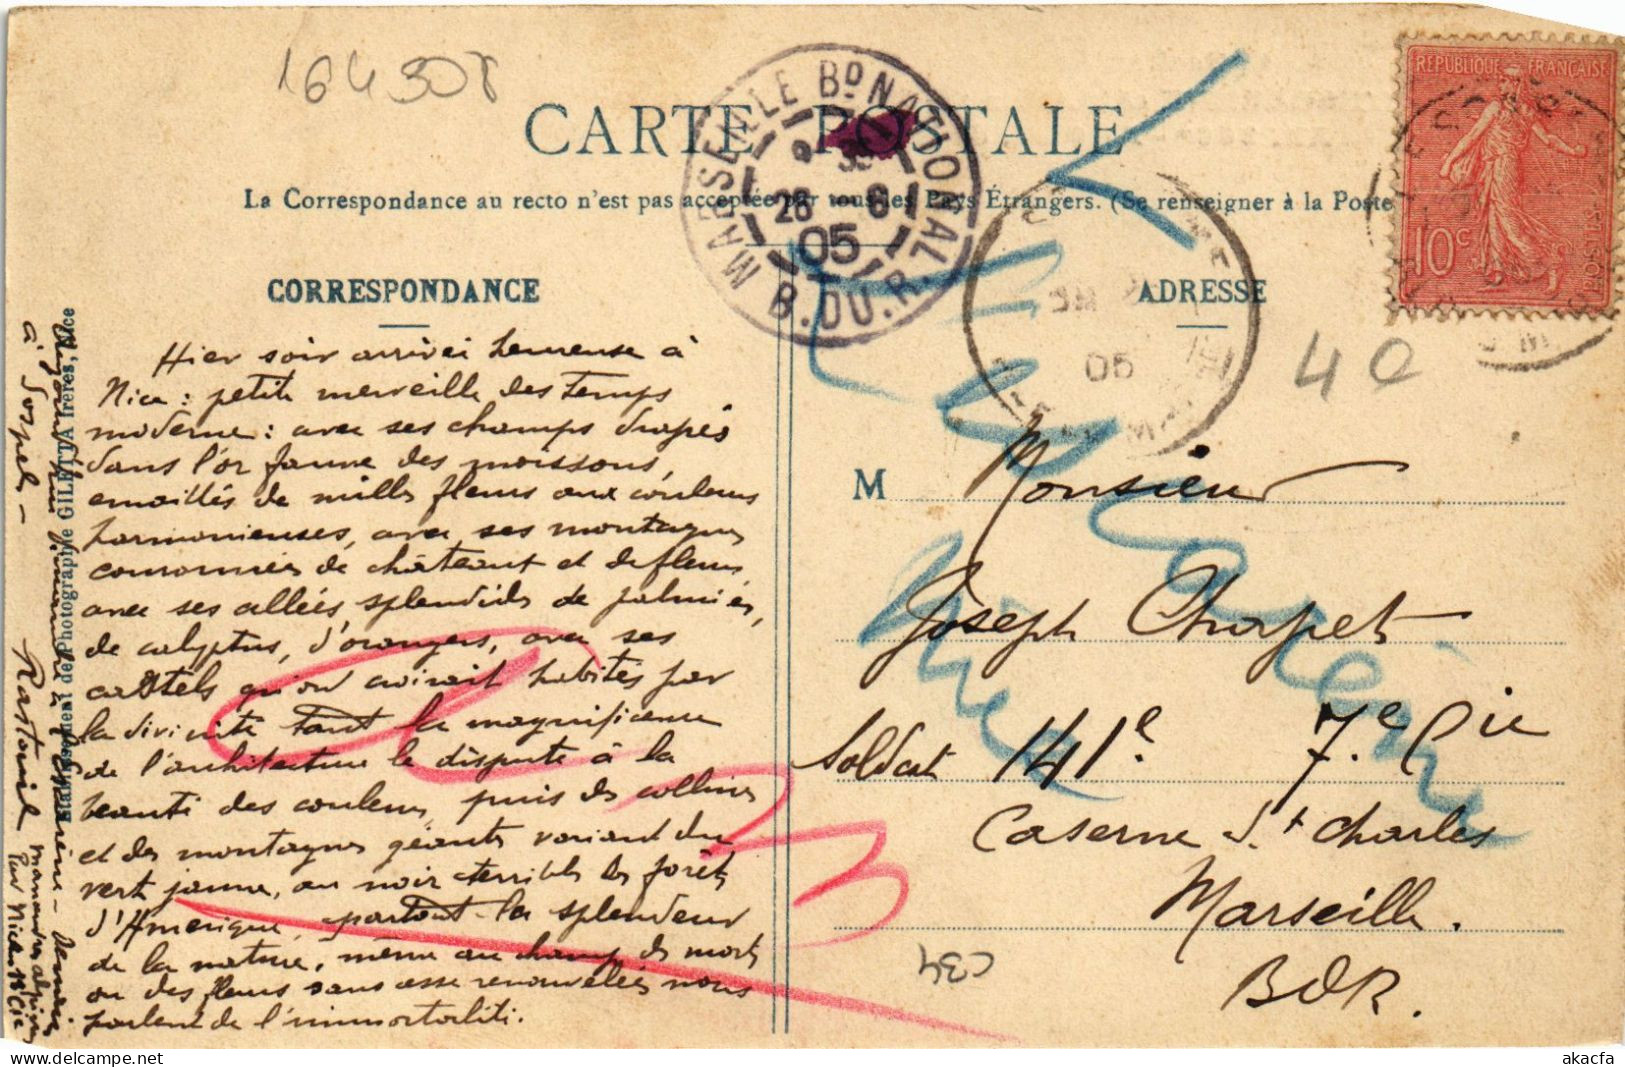 164308
CARTE POSTALE
La Correspondance au recto n'est pas acceptée par tous les Pays Étrangers. (Se renseigner à la Poste
MARSEILLE Bd NATIONAL
26 6
05
B. DU. R.
RÉPUBLIQUE FRANÇAISE
10c
POSTES
05
CORRESPONDANCE
ADRESSE
40
Hier soir arrivée heureuse à
Nice : petite merveille des temps
moderne : avec ses champs drapés
dans l'or jaune des moissons,
émaillés de mille fleurs aux couleurs
harmonieuses, avec ses montagnes
couronnées de châteaux et de fleurs,
avec ses allées splendides de palmiers,
de calyptus, d'orangers, avec ses
castels qu'on croirait habités par
la divinité tant la magnificence
de l'architecture le dispute à la
beauté des couleurs, puis des collines
et des montagnes géantes variant du
vert jaune, au noir terrible des forêts
d'Amérique, partout la splendeur
de la nature, même au champ des morts
où des fleurs sans cesse renouvelées nous
parlent de l'immortalité.
à Sospel - Rastouil
Établissement de Photographie GILETTA frères, Nice
M Monsieur
Joseph Chapet
Soldat 141e. 7e Cie
Caserne St Charles
Marseille.
BDR.
C34
akacfa